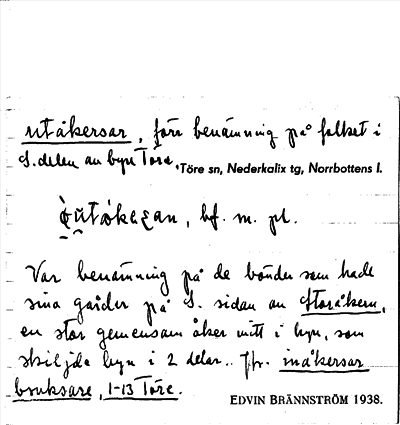 utåkersar, förr benämning på folket i
S. delen av byn Töre.
Töre sn, Nederkalix tg, Norrbottens l.
bf. m. pl.
Var benämning på de bönder som hade
sina gårdar på S. sidan av Storåkern,
en stor gemensam åker mitt i byn, som
skiljde byn i 2 delar. Jfr. inåkersar
bruksare, 1-13 Töre.
EDVIN BRÄNNSTRÖM 1938.